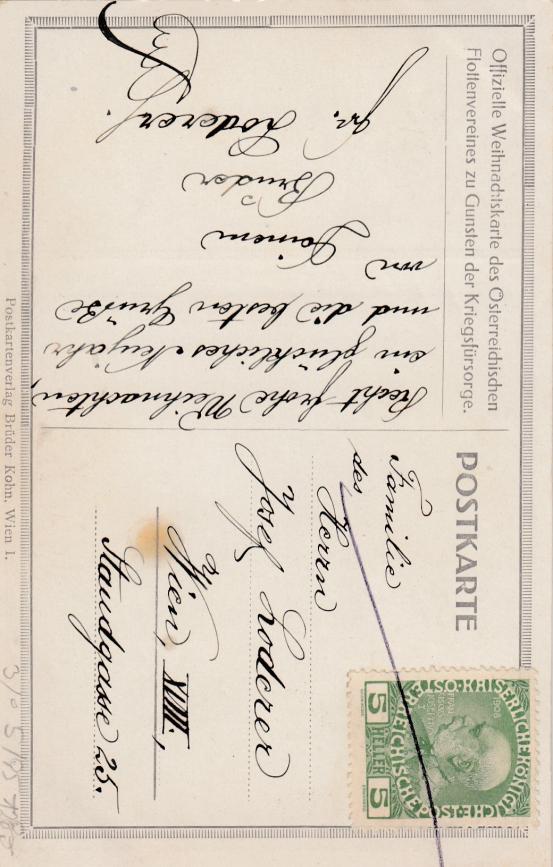 Offizielle Weihnachtskarte des Österreichischen
Flottenvereines zu Gunsten der Kriegsfürsorge.
Recht frohe Weihnachten,
ein glückliches Neujahr
und die besten Grüße
von
Deinem
Bruder
Fr. Loderer.
POSTKARTE
Familie
des Herrn
Josef Loderer
Wien, XVIII.,
Staudgasse 25.
KAISERLICHE KÖNIGLICHE ÖSTERREICHISCHE POST
1908
FRANZ JOSEF I
5 HELLER 5
Postkartenverlag Brüder Kohn, Wien I.